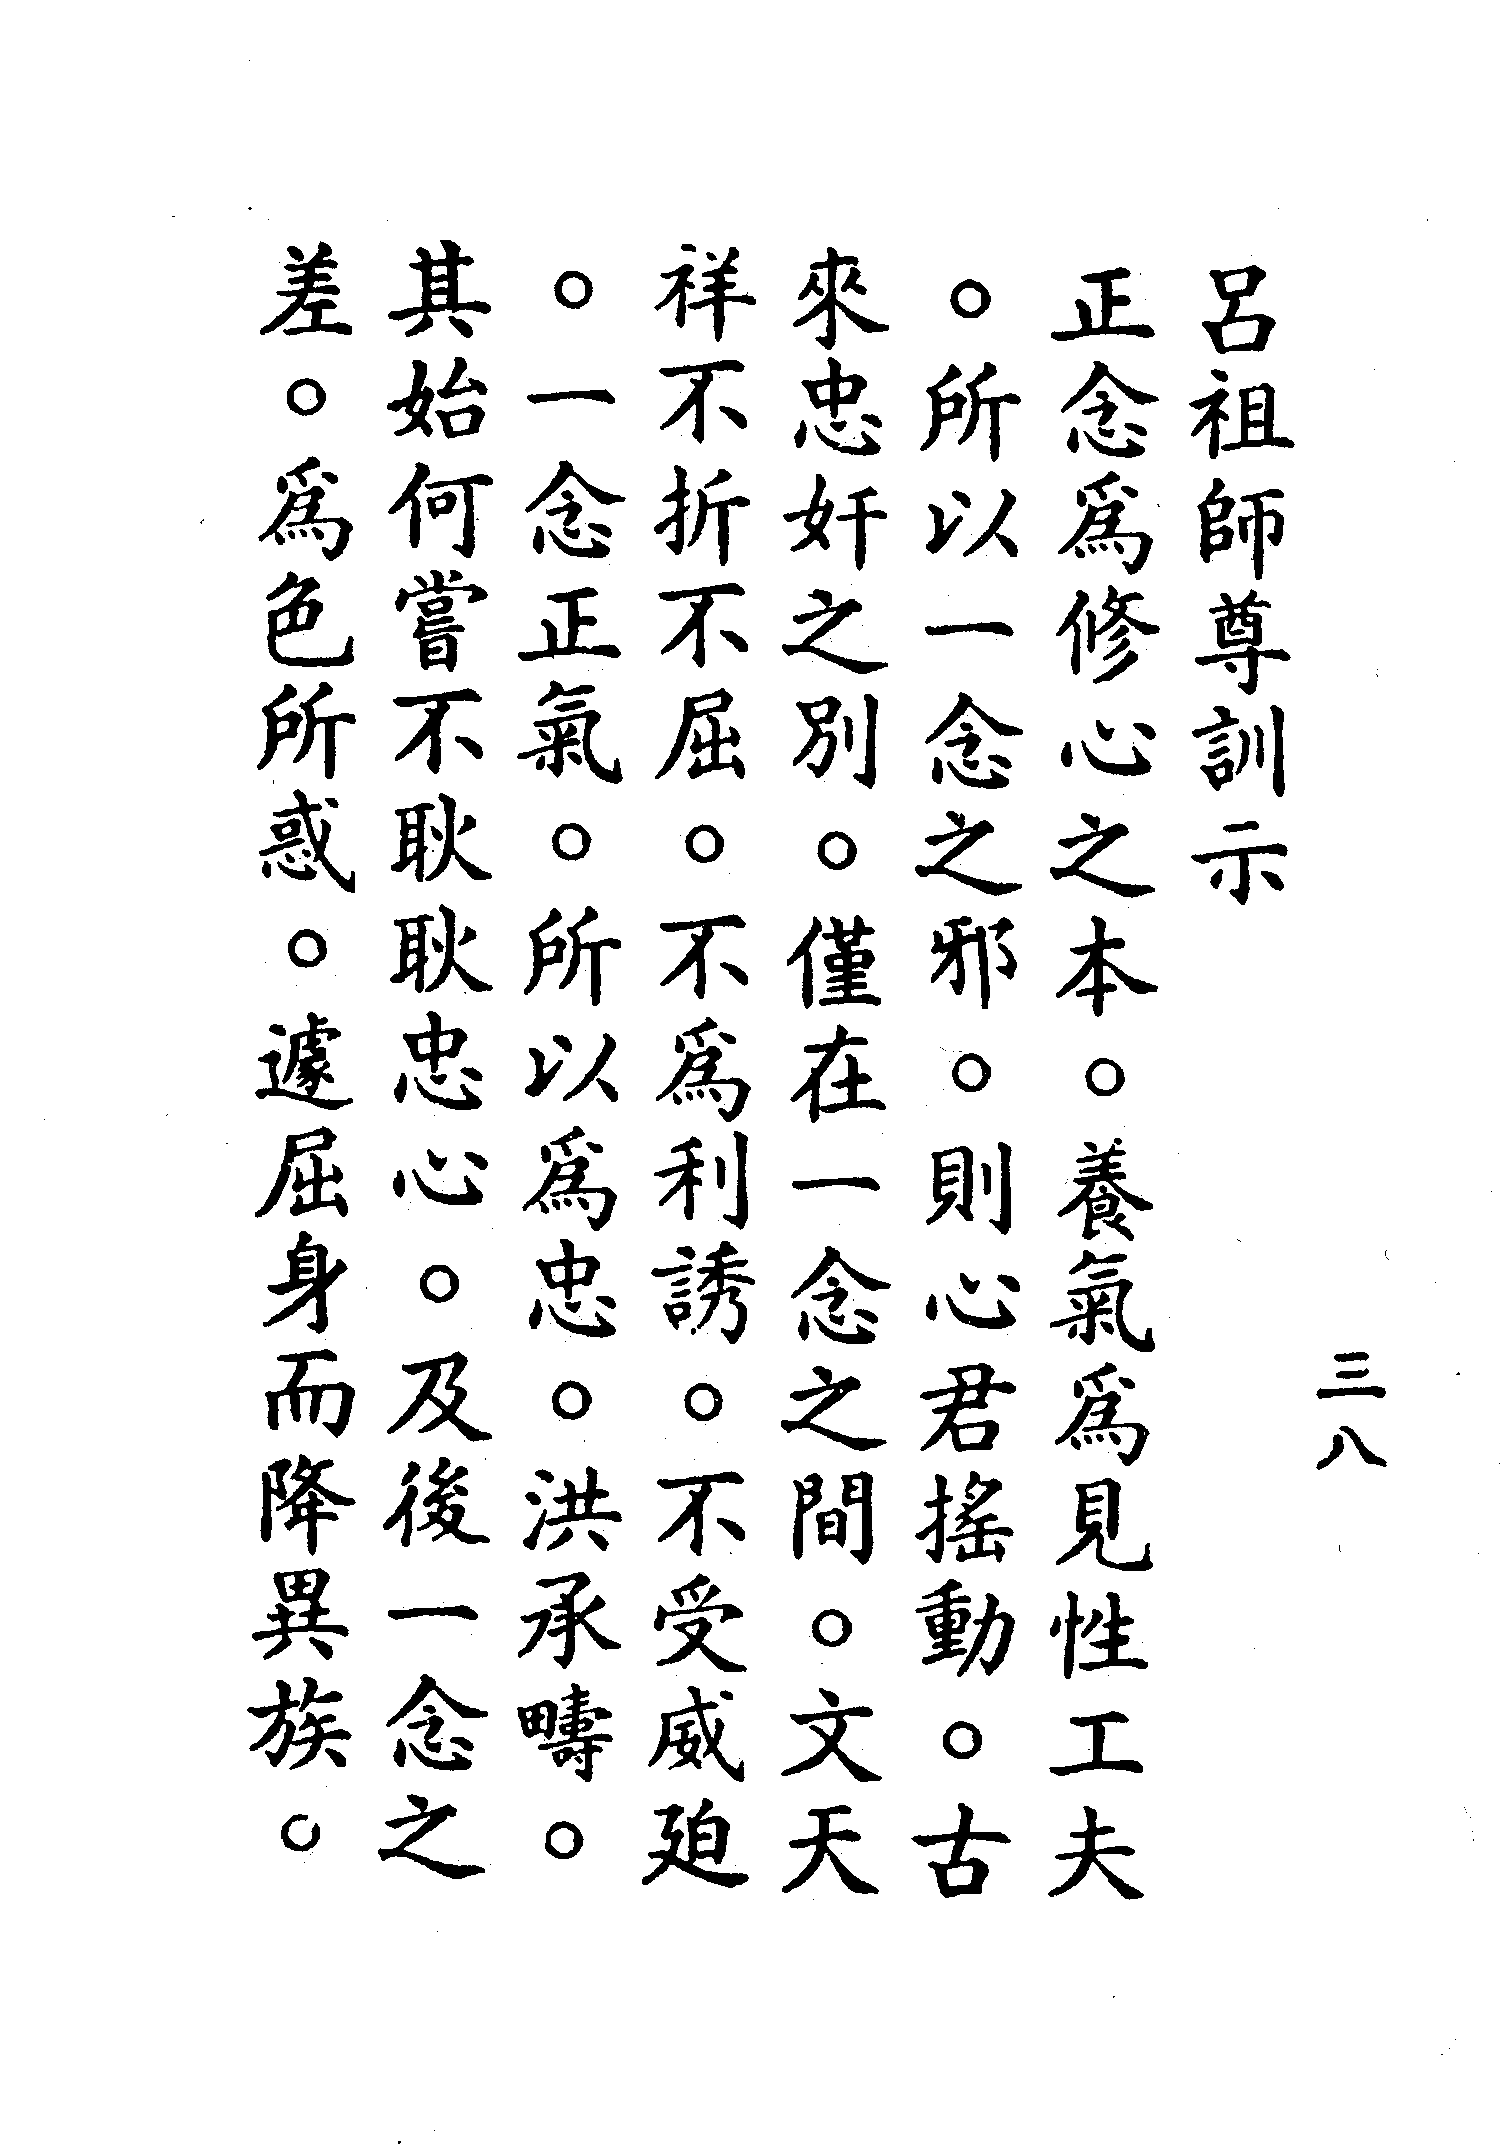 三八
呂祖師尊訓示
正念爲修心之本。養氣爲見性工夫
。所以一念之邪。則心君搖動。古
來忠奸之別。僅在一念之間。文天
祥不折不屈。不爲利誘。不受威廹
。一念正氣。所以爲忠。洪承疇。
其始何嘗不耿耿忠心。及後一念之
差。爲色所惑。遽屈身而降異族。